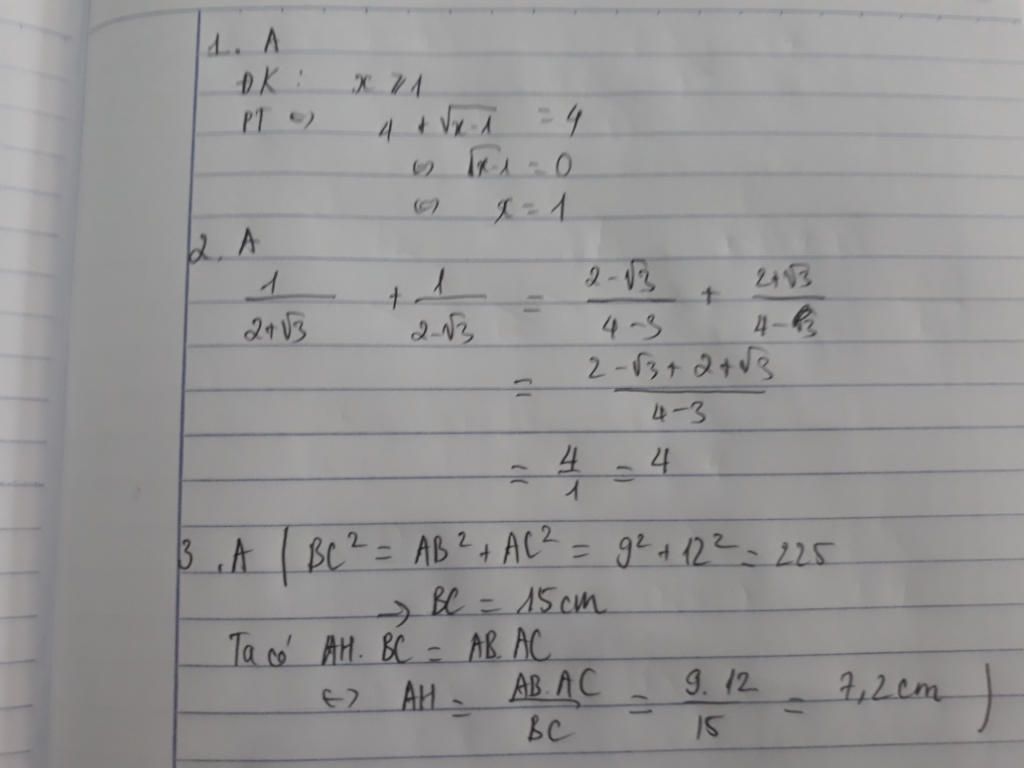 1. A
ĐK : x ≥ 1
PT ⇔ 4 + √x-1 = 4
⇔ √x-1 = 0
⇔ x = 1
2. A
1/(2+√3) + 1/(2-√3) = (2-√3)/(4-3) + (2+√3)/(4-3)
= (2-√3+2+√3)/(4-3)
= 4/1 = 4
3. A ( BC² = AB² + AC² = 9² + 12² = 225
→ BC = 15cm
Ta có AH. BC = AB. AC
⇔ AH = AB.AC/BC = 9. 12/15 = 7,2 cm )